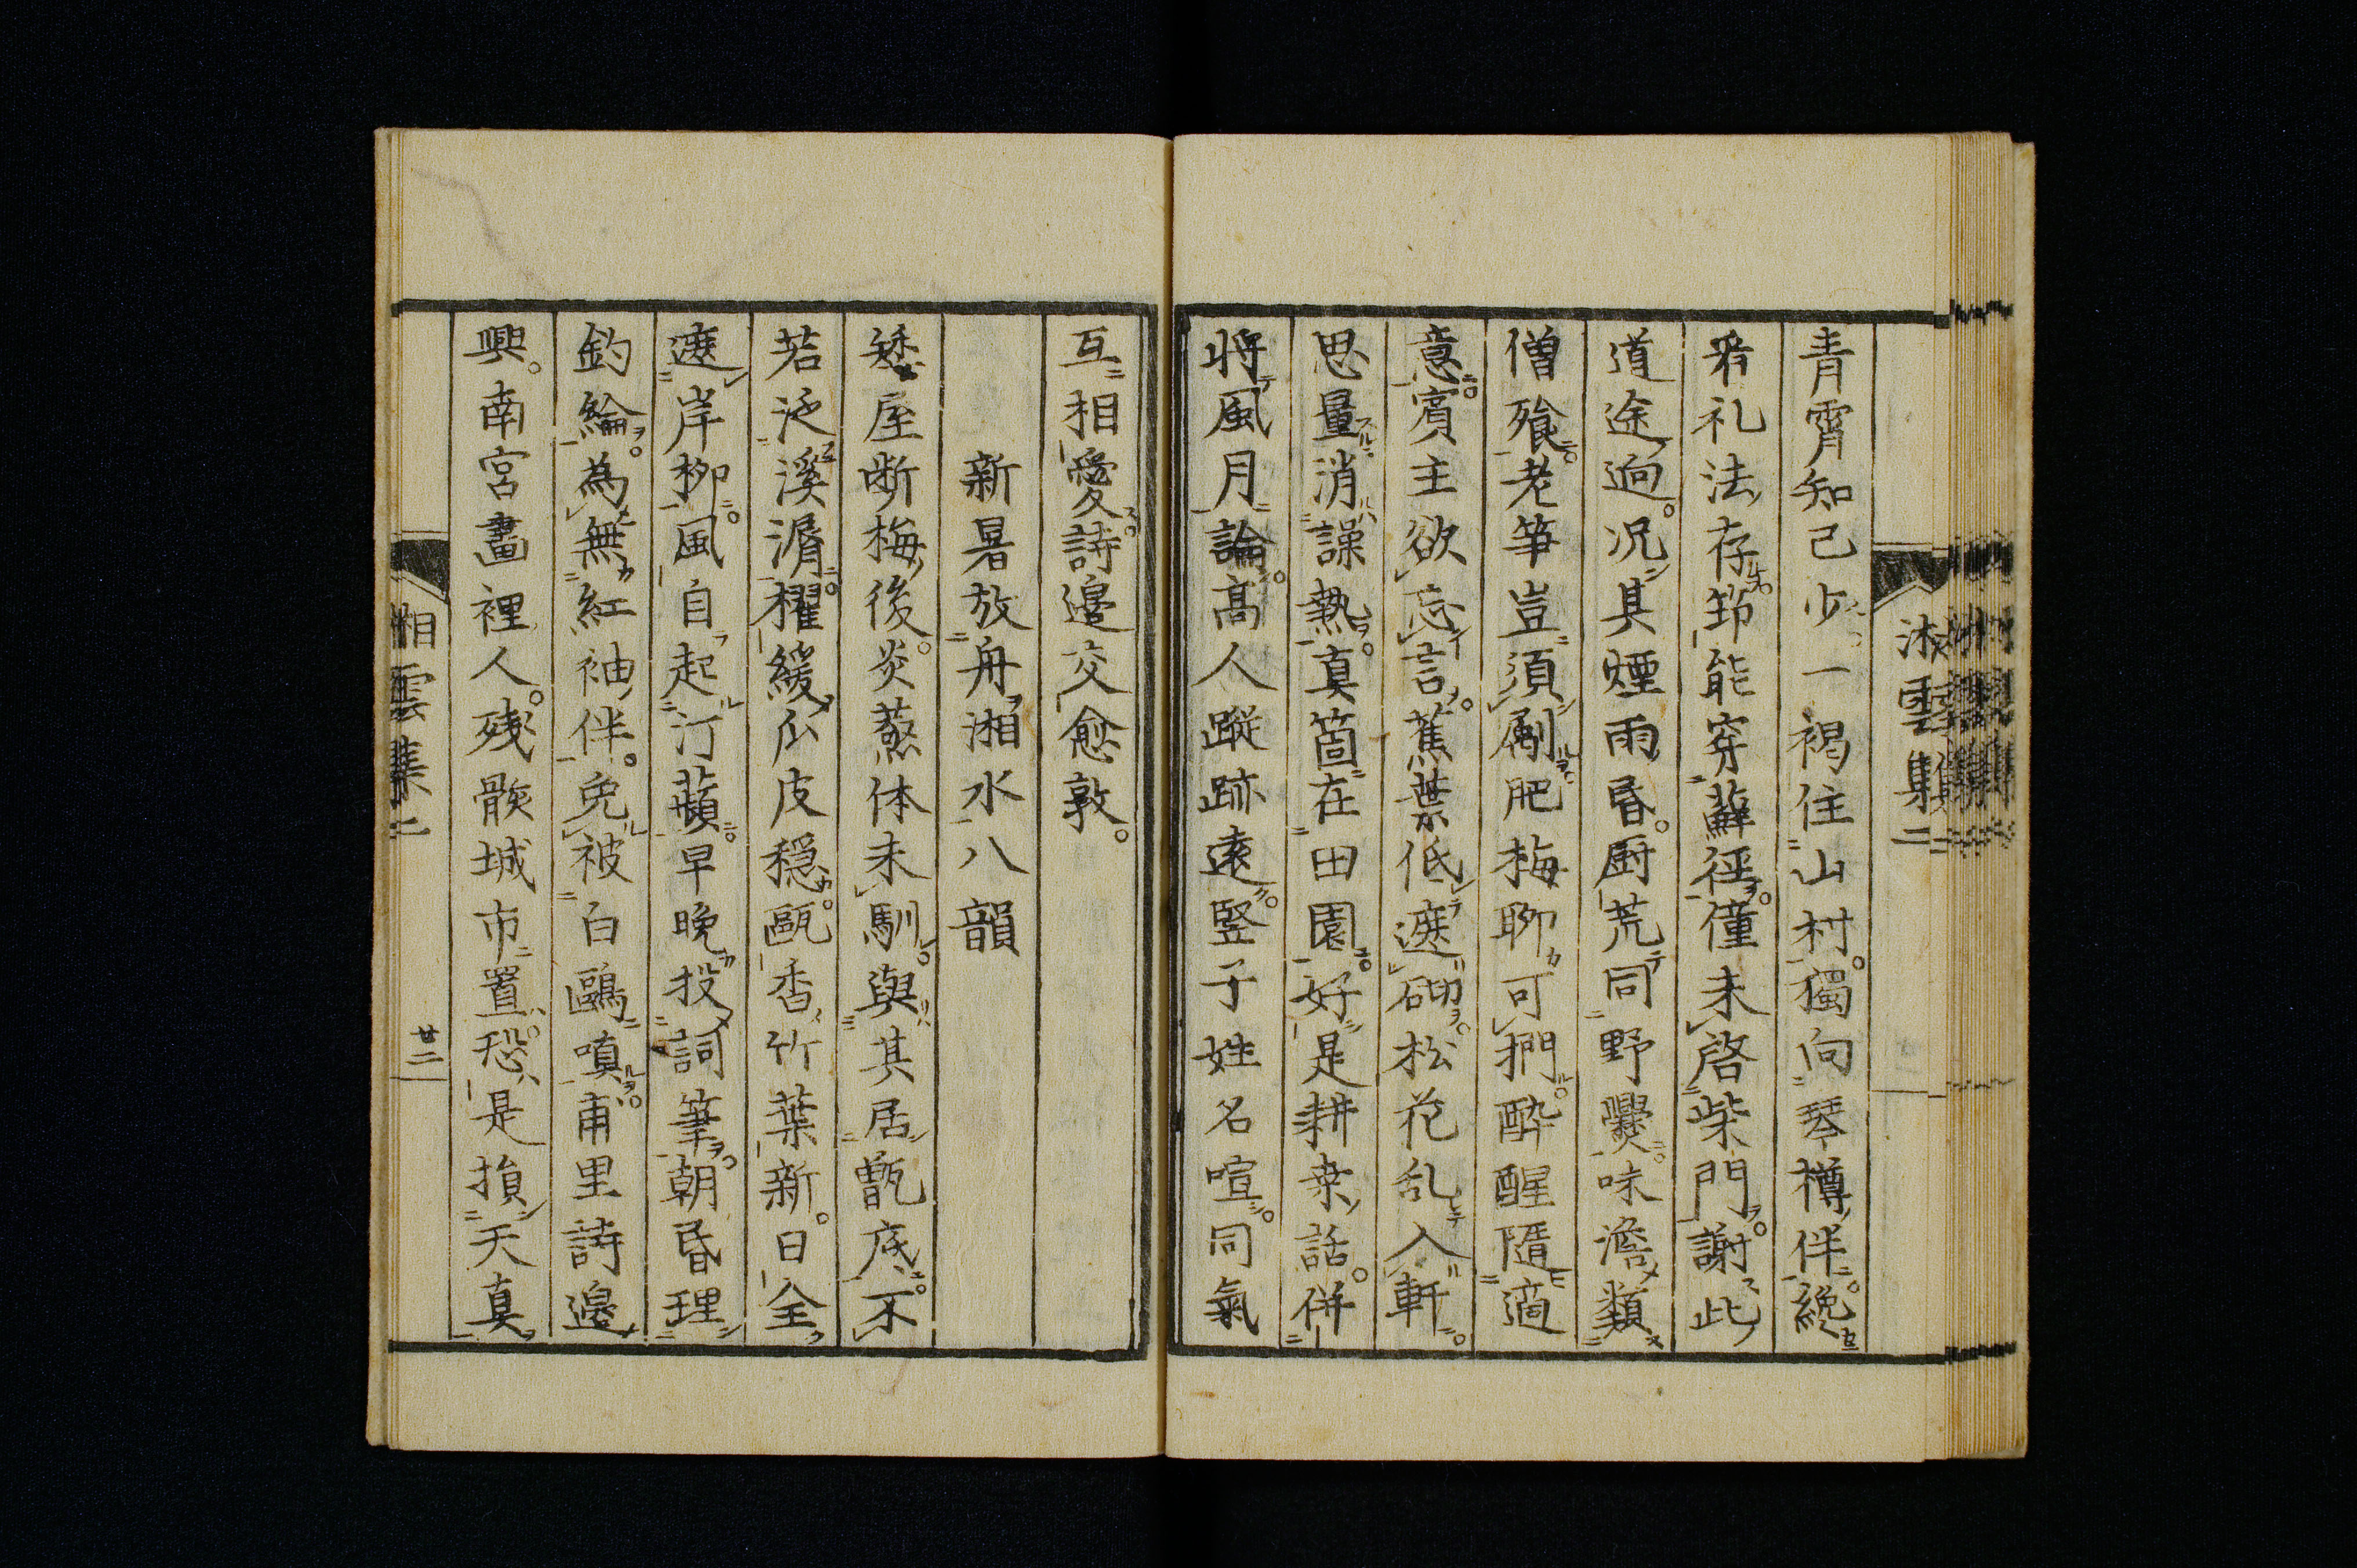 湘雲集二
青霄知己少一褐住山村。獨向琴樽伴。纔
看礼法存。筇能穿蘚徑。僮未啓柴門。謝此
道途逈。况其煙雨昏。厨荒同野爨。味澹類
僧飱。老笋豈須劚肥梅聊可捫。酔醒隨適
意。賓主欲忘言。蕉葉低遮硯。松花乱入軒。
思量消譟熱。真箇在田園。好是耕桒話。併
将風月論。高人蹤跡遠。竪子姓名喧。同氣
互相愛。詩邊交愈敦。
新暑放舟湘水八韻
矮屋断梅後。炎蒸体未馴。與其居甑底。不
若泛溪漘。櫂緩瓜皮穏。甌香竹葉新。日全
遮岸栁。風自起汀蘋。早晩投詞筆。朝昏理
釣綸。為無紅袖伴。免被白鷗嗔。甫里詩邊
興。南宮畫裡人。残骸城市置。恐是損天真
湘雲集二
廿二